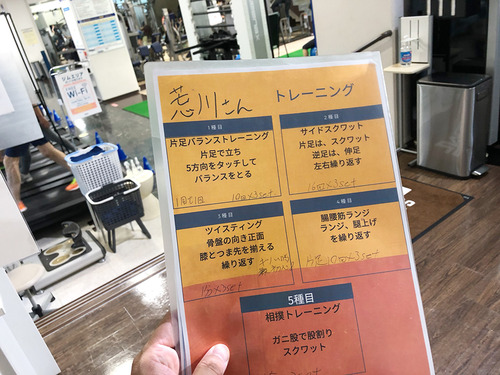 荒川さん
トレーニング
1種目
片足バランストレーニング
片足で立ち
5方向をタッチして
バランスをとる
10回×3set
2種目
サイドスクワット
片足は、スクワット
逆足は、伸足
左右繰り返す
16回×3set
3種目
ツイスティング
骨盤の向き正面
膝とつま先を揃える
繰り返す
4種目
腸腰筋ランジ
ランジ、腿上げ
を繰り返す
10回×3set
5種目
相撲トレーニング
ガニ股で股割り
スクワット
ジムエリア
Wi-Fi